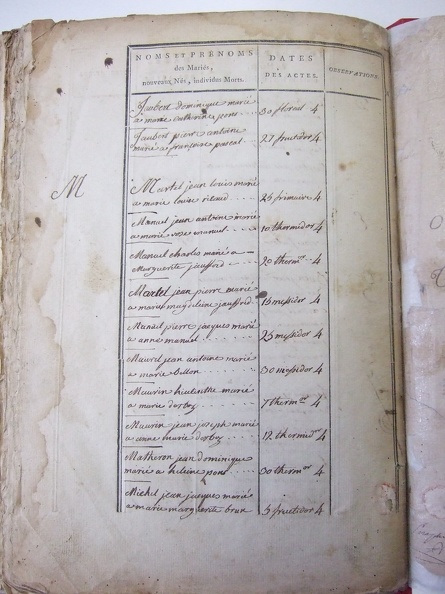 NOMS ET PRÉNOMS
des Mariés,
nouveaux Nés, individus Morts.
DATES
DES ACTES.
OBSERVATIONS
Jaubert dominique marié
à marie catherine pons 30 floreal 4
Jaubert pierre antoine
marié a françoise pascal 27 fructidor 4
M
Martel jean louis marié
a marie louise 25 frimaire 4
Manuel jean antoine marié
a marie rose manuel 10 thermidor 4
Manuel charles marié a
Marguerite jauffred 20 therm.or 4
Martel jean pierre marié
a marie magdeleine jauffred 15 messidor 4
Manuel pierre jacques marié
a anne manuel 25 messidor 4
Maurel jean antoine marié
a marie Bellon 30 messidor 4
Maurin marié
a marie 7 therm.or 4
Maurin jean joseph marié
a anne marie 12 thermid.or 4
Matheron jean dominique
marié a heleine pons 30 therm.or 4
Michel jean jacques marié
a marie marguerite brun 5 fructidor 4